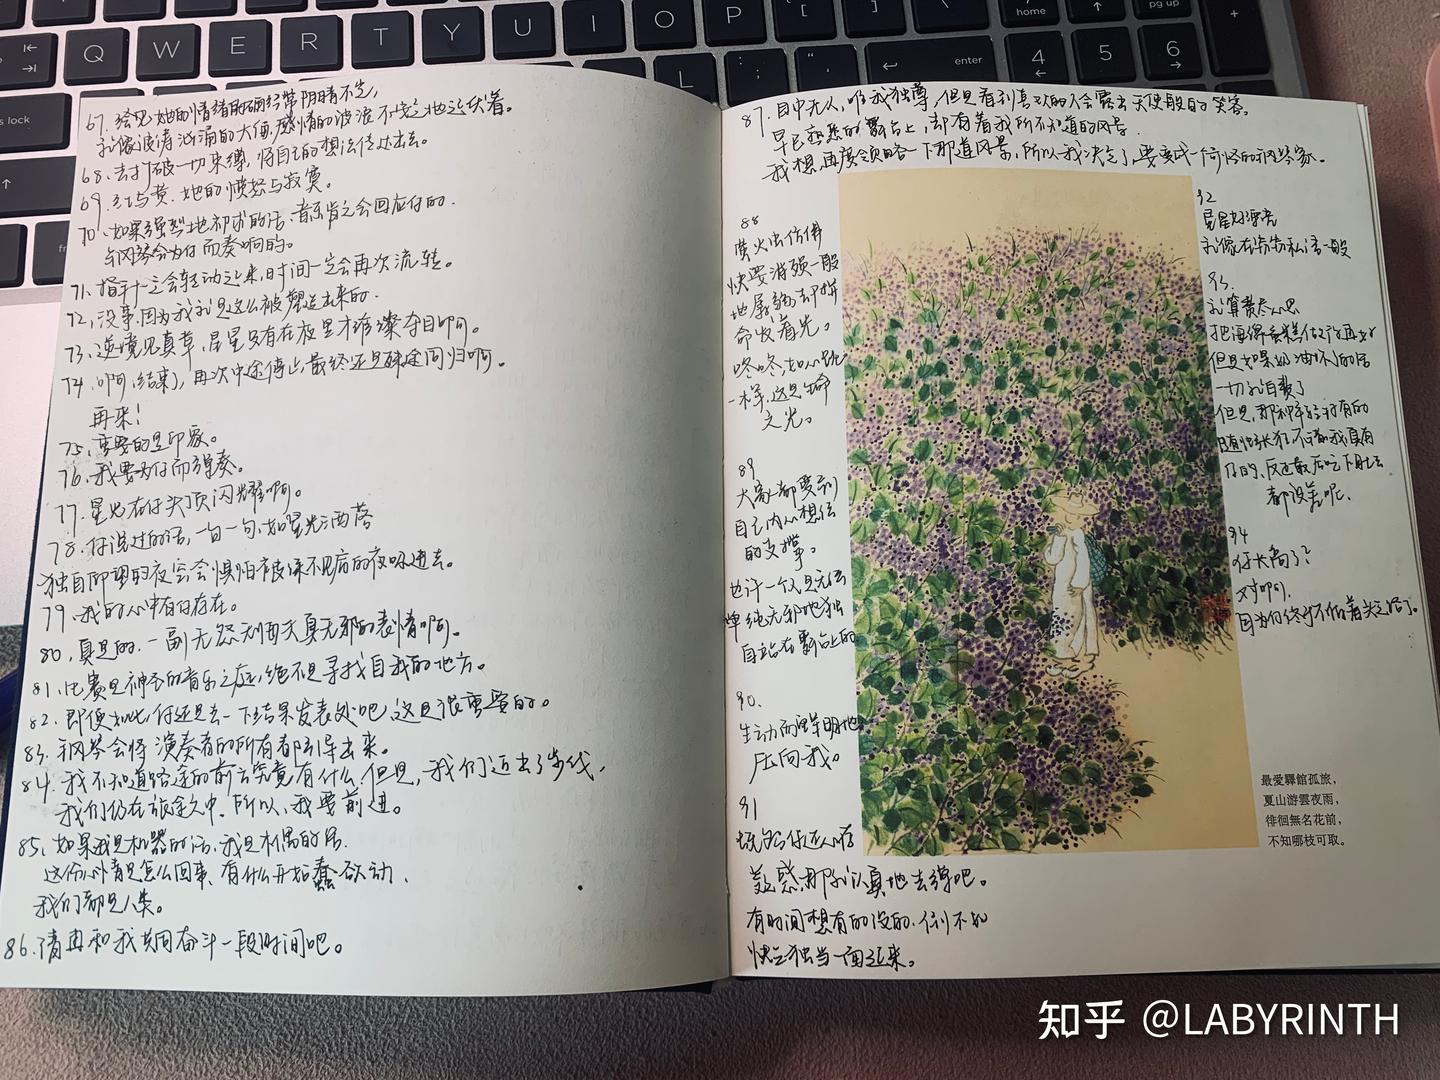 Q W E R T Y U I O P
home
pg up
enter
4 5 6
s lock
L
就像波涛汹涌的大海,感情的波浪不一定地远伏着。
68、去打破一切束缚,将自己的想法传达出去。
69、红与黄、她的愤怒与寂寞。
70、如果强烈地祈求的话、音乐肯定会回应你的.
钢琴会为你而奏响的。
71、指针一定会转动起来,时间一定会再次流转。
72、没事,因为我就是这么被塑造出来的.
73、逆境见真章,星星只有在夜里才璀璨夺目啊。
74、啊,结束了,再次中途停止,最终还是殊途同归啊。
再来!
75、重要的是印象。
76、我要为你而弹奏。
77、星也在你头顶闪耀啊。
78、你说过的话,一句一句,如星光洒落
独自仰望的夜空会惧怕被深不见底的夜吸进去。
79、我的心中有你存在。
80、真是的、一副无怨无悔天真无邪的表情啊。
81、比赛是神圣的音乐之庭,绝不是寻找自我的地方。
82、即便如此,你还是去一下结果发表处吧、这是很重要的。
83、钢琴会将演奏者的所有都引导出来。
84、我不知道路途的前方究竟有什么,但是,我们迈出了步伐,
我们仍在旅途之中、所以、我要前进。
85、如果我是机器的话、我是木偶的话、
这份心情是怎么回事、有什么开始蠢蠢欲动、
我们都是人类。
86、请再和我共同奋斗一段时间吧。
87、目中无人,唯我独尊,但是看到喜欢的人会露出天使般的笑容,
早已熟悉的舞台上,却有着我所不知道的风景.
我想再度领略一下那道风景,所以我决定了,要变成一个出色的钢琴家。
88
萤火虫仿佛
快要消殒一般
地孱弱,却拼
命发着光。
咚咚,如心跳
一样,这是生命
之光。
89
大家都要找到
自己内心相信
的支撑。
也许一个人是无法
单纯无邪地独
自站在舞台上的
90.
生动而鲜明地
压向我。
91
既然你还心存
疑惑,那就认真地去弹吧。
有时间想有的没的、倒不如
快点独当一面起来。
92
星星好漂亮
就像在窃窃私语一般
93.
就算费尽心思
把海绵蛋糕做得再好
但是如果奶油坏了的话
一切就白费了
但是,那种年轻特有的
随性张狂不羁我真有
你的、反正最后吃下肚去
都没差呢、
94
你长高了?
对啊,
因为你终于不低着头走路了。
最愛驛館孤旅,
夏山游雲夜雨,
徘徊無名花前,
不知哪枝可取。
知乎 @LABYRINTH